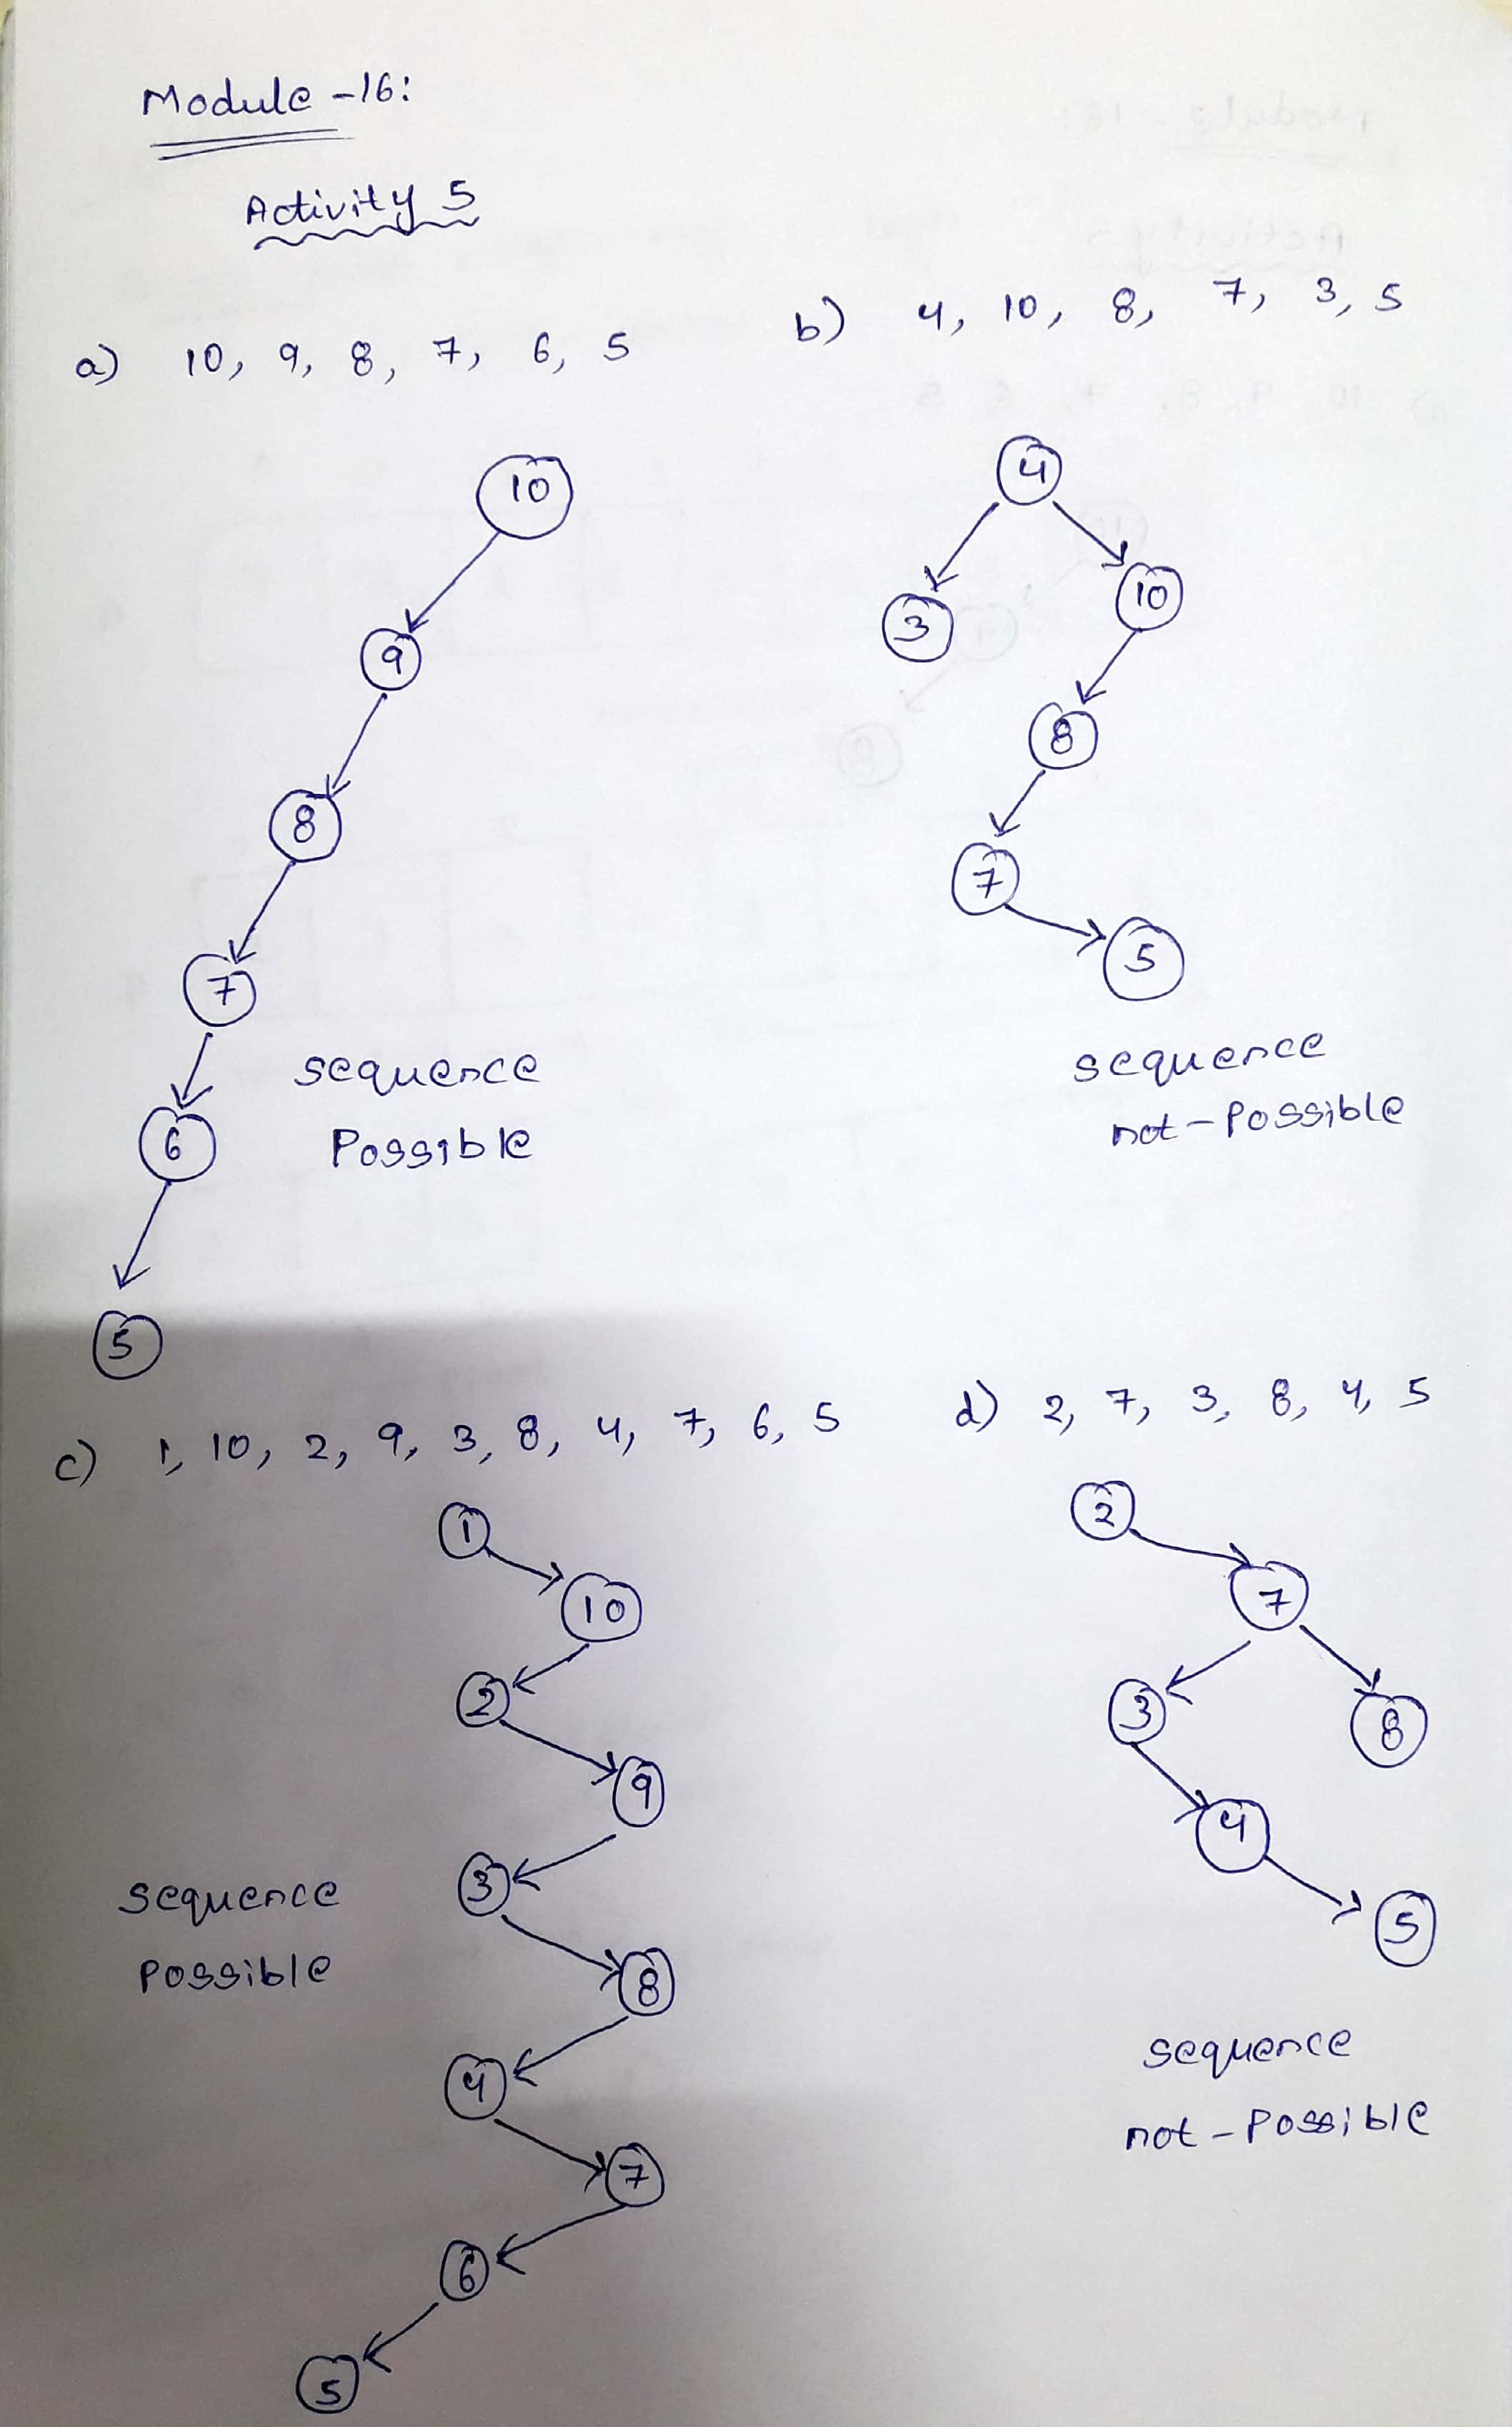 Module -16:
Activity 5
a) 10, 9, 8, 7, 6, 5
10
9
8
7
6
5
sequence
Possible
b) 4, 10, 8, 7, 3, 5
4
3
10
8
7
5
sequence
not-Possible
c) 1, 10, 2, 9, 3, 8, 4, 7, 6, 5
1
10
2
9
3
8
4
7
6
5
sequence
possible
d) 2, 7, 3, 8, 4, 5
2
7
3
8
4
5
sequence
not-Possible